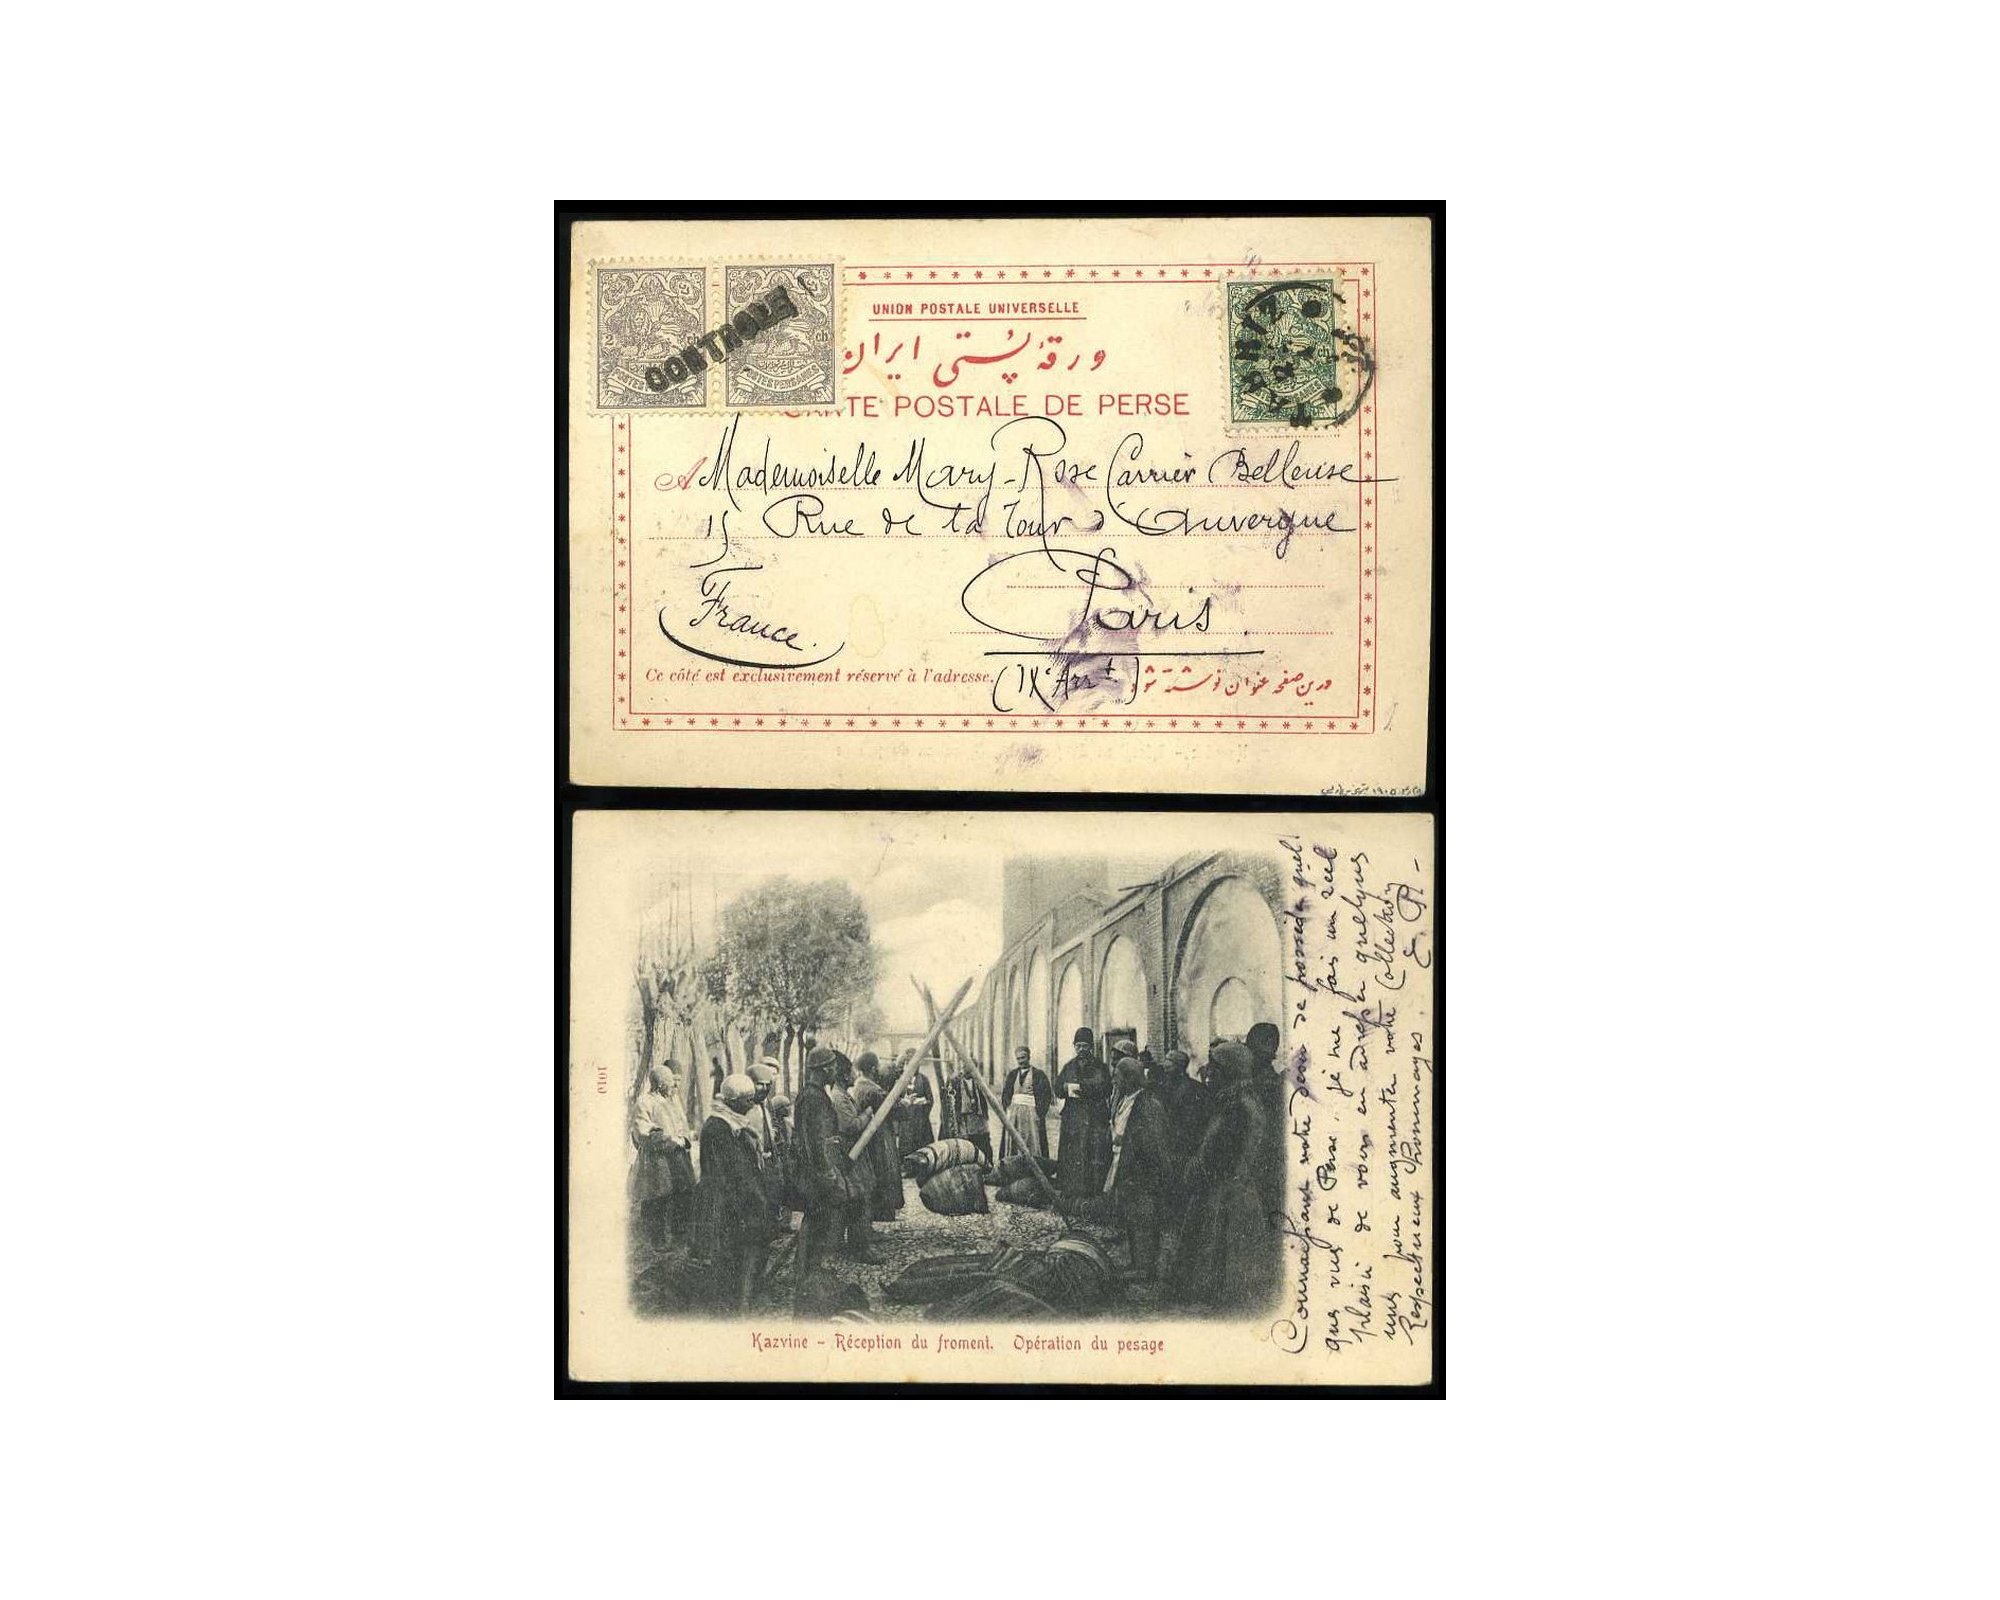 UNION POSTALE UNIVERSELLE
ورقهٔ پُستی ایران
CARTE POSTALE DE PERSE
CONTROLE
2 ch
ch
POSTES PERSANES
A Mademoiselle Mary-Rose Carrier Belleuse
15 Rue de la Tour d'Auvergne
Paris.
(IXe Arrt)
France.
Ce côté est exclusivement réservé à l'adresse.
درین صفحه عنوان نوشته شو
Connaissant votre désir de posséder quel
ques vues de Perse, je me fais un réel
plaisir de vous en adresser quelques
unes pour augmenter votre Collection
Respectueux hommages. E. P. -
1010
Kazvine - Réception du froment. Opération du pesage